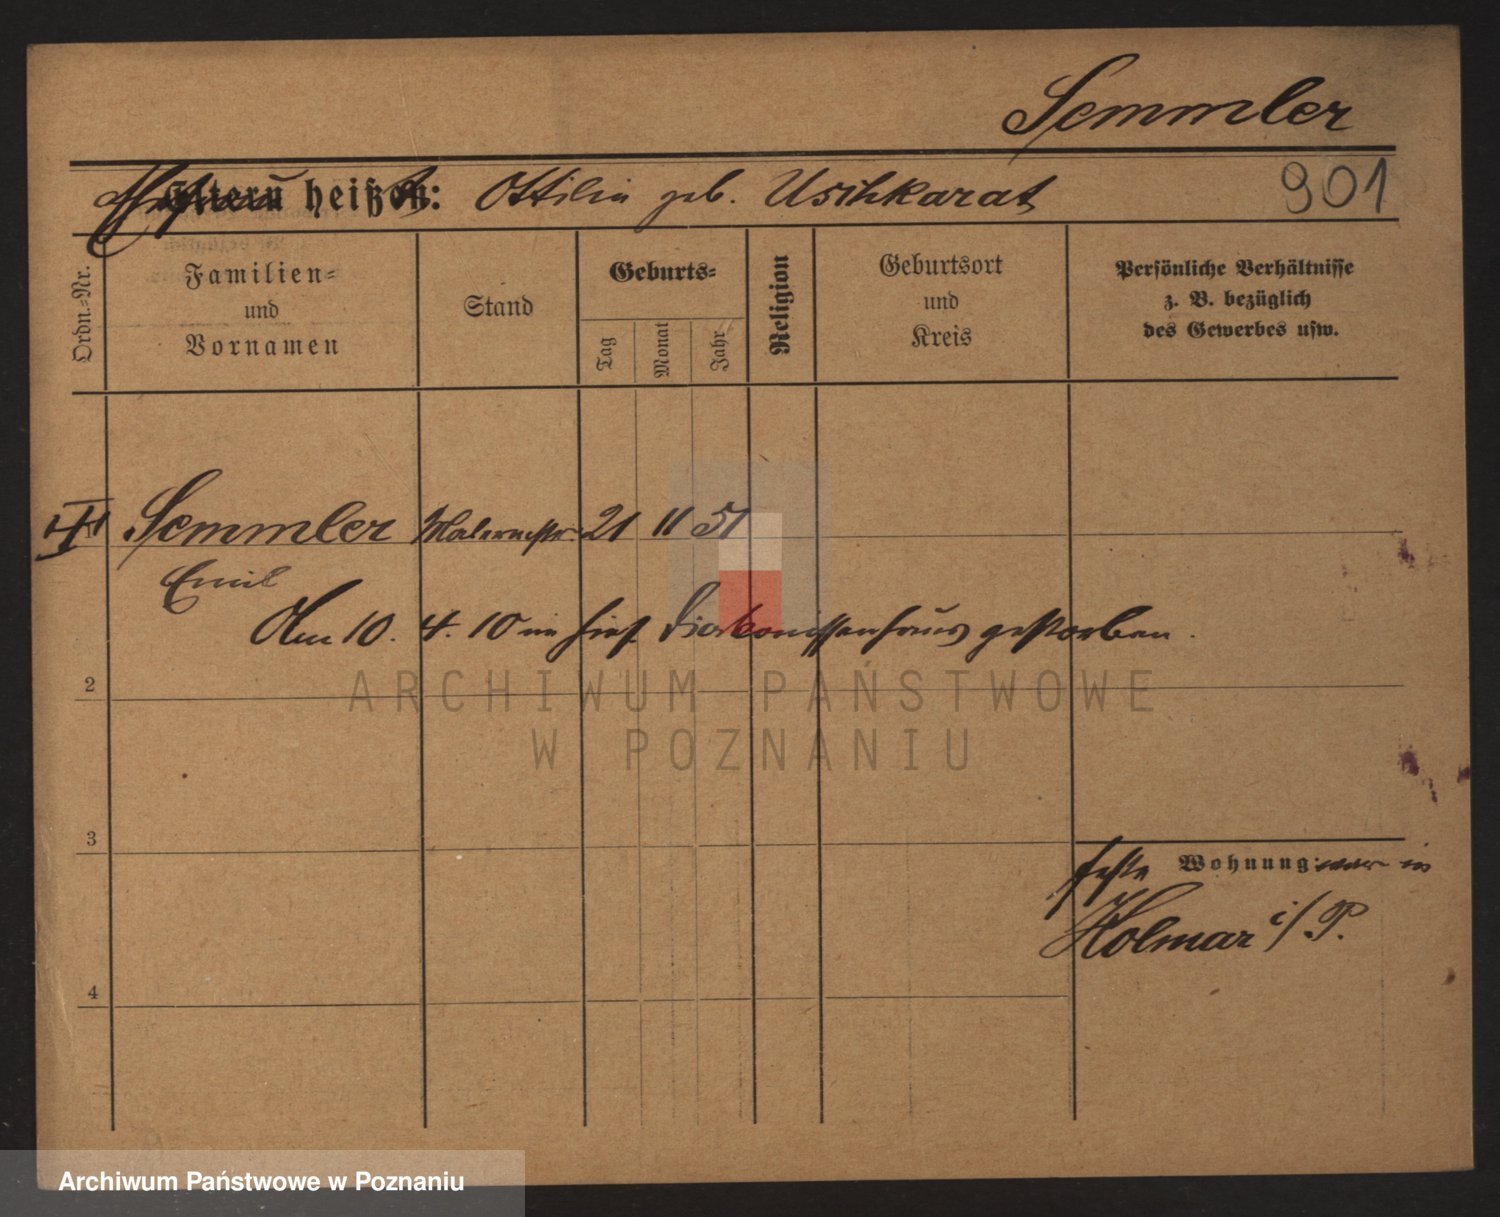 Semmler
Eltern heißen: Ottilie geb. Uschkarat
901
Ordn.=Nr.
Familien=
und
Vornamen
Stand
Geburts=
Tag
Monat
Jahr
Religion
Geburtsort
und
Kreis
Persönliche Verhältnisse
z. B. bezüglich
des Gewerbes usw.
Semmler Malermstr. 21 11 51
Emil
Am 10. 4. 10 im hies. Diakonissenhaus gestorben.
2
ARCHIWUM PAŃSTWOWE
W POZNANIU
3
feste Wohnung: war in
Kolmar i/P.
4
Archiwum Państwowe w Poznaniu